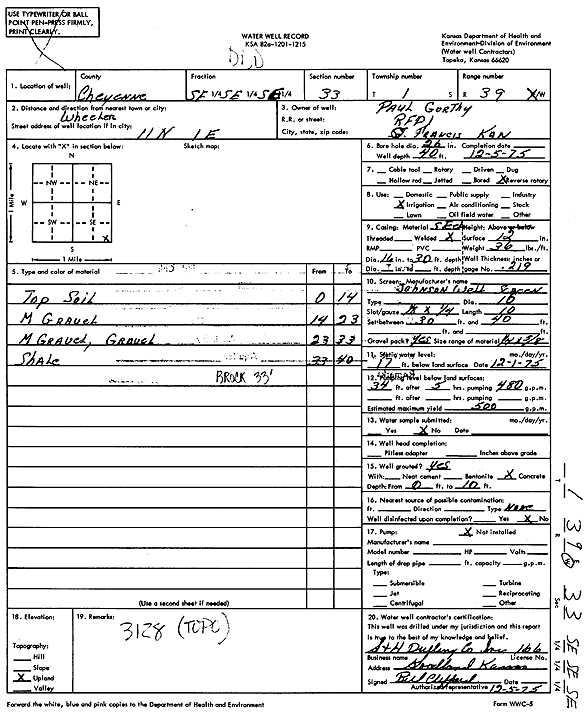 USE TYPEWRITER OR BALL
POINT PEN-PRESS FIRMLY,
PRINT CLEARLY.
WATER WELL RECORD
KSA 82a-1201-1215
Kansas Department of Health and
Environment-Division of Environment
(Water well Contractors)
Topeka, Kansas 66620
1. Location of well: County Cheyenne Fraction SE 1/4 SE 1/4 SE 1/4 Section number 33 Township number T 1 S Range number R 39 X/W
2. Distance and direction from nearest town or city: Wheeler
Street address of well location if in city: 11N 1E
3. Owner of well: Paul Gorthy
R.R. or street: RFD1
City, state, zip code: St Francis Kan
4. Locate with "X" in section below: Sketch map:
N
NW NE
W E
SW SE
X
S
1 Mile
1 Mile
5. Type and color of material From To
Top Soil 0 14
M Gravel 14 23
M Gravel, Gravel 23 33
Shale 33 40
Brock 33'
(Use a second sheet if needed)
6. Bore hole dia. 26 in. Completion date
Well depth 40 ft. 12-5-75
7. Cable tool Rotary Driven Dug
Hollow rod Jetted Bored X Reverse rotary
8. Use: Domestic Public supply Industry
X Irrigation Air conditioning Stock
Lawn Oil field water Other
9. Casing: Material Height: Above or below
Threaded Welded X Surface 12 in.
RMP PVC Weight 36 lbs./ft.
Dia. 16 in. to 30 ft. depth Wall Thickness: inches or
Dia. in. to ft. depth gage No. .219
10. Screen: Manufacturer's name
Johnson Well Screen
Type Dia. 16
Slot/gauze Length 10
Set between 30 ft. and 40 ft.
ft. and ft.
Gravel pack? Yes Size range of material
11. Static water level: mo./day/yr.
17 ft. below land surface Date 12-1-75
12. Pumping level below land surfaces:
34 ft. after 5 hrs. pumping 480 g.p.m.
ft. after hrs. pumping g.p.m.
Estimated maximum yield 500 g.p.m.
13. Water sample submitted: mo./day/yr.
Yes X No Date
14. Well head completion:
Pitless adapter Inches above grade
15. Well grouted? Yes
With: Neat cement Bentonite X Concrete
Depth: From 0 ft. to 10 ft.
16. Nearest source of possible contamination:
ft. Direction Type None
Well disinfected upon completion? Yes X No
17. Pump: X Not installed
Manufacturer's name
Model number HP Volts
Length of drop pipe ft. capacity g.p.m.
Type:
Submersible Turbine
Jet Reciprocating
Centrifugal Other
18. Elevation:
Topography:
Hill
Slope
X Upland
Valley
19. Remarks:
3128 (TOPO)
20. Water well contractor's certification:
This well was drilled under my jurisdiction and this report
is true to the best of my knowledge and belief.
S&H Drilling Co Inc 166
Business name License No.
Address Goodland Kansas
Signed Bill Clifford 12-5-75
Authorized representative
T 1 R 39 W Sec 33 SE 1/4 SE 1/4 SE 1/4
Forward the white, blue and pink copies to the Department of Health and Environment
Form WWC-5